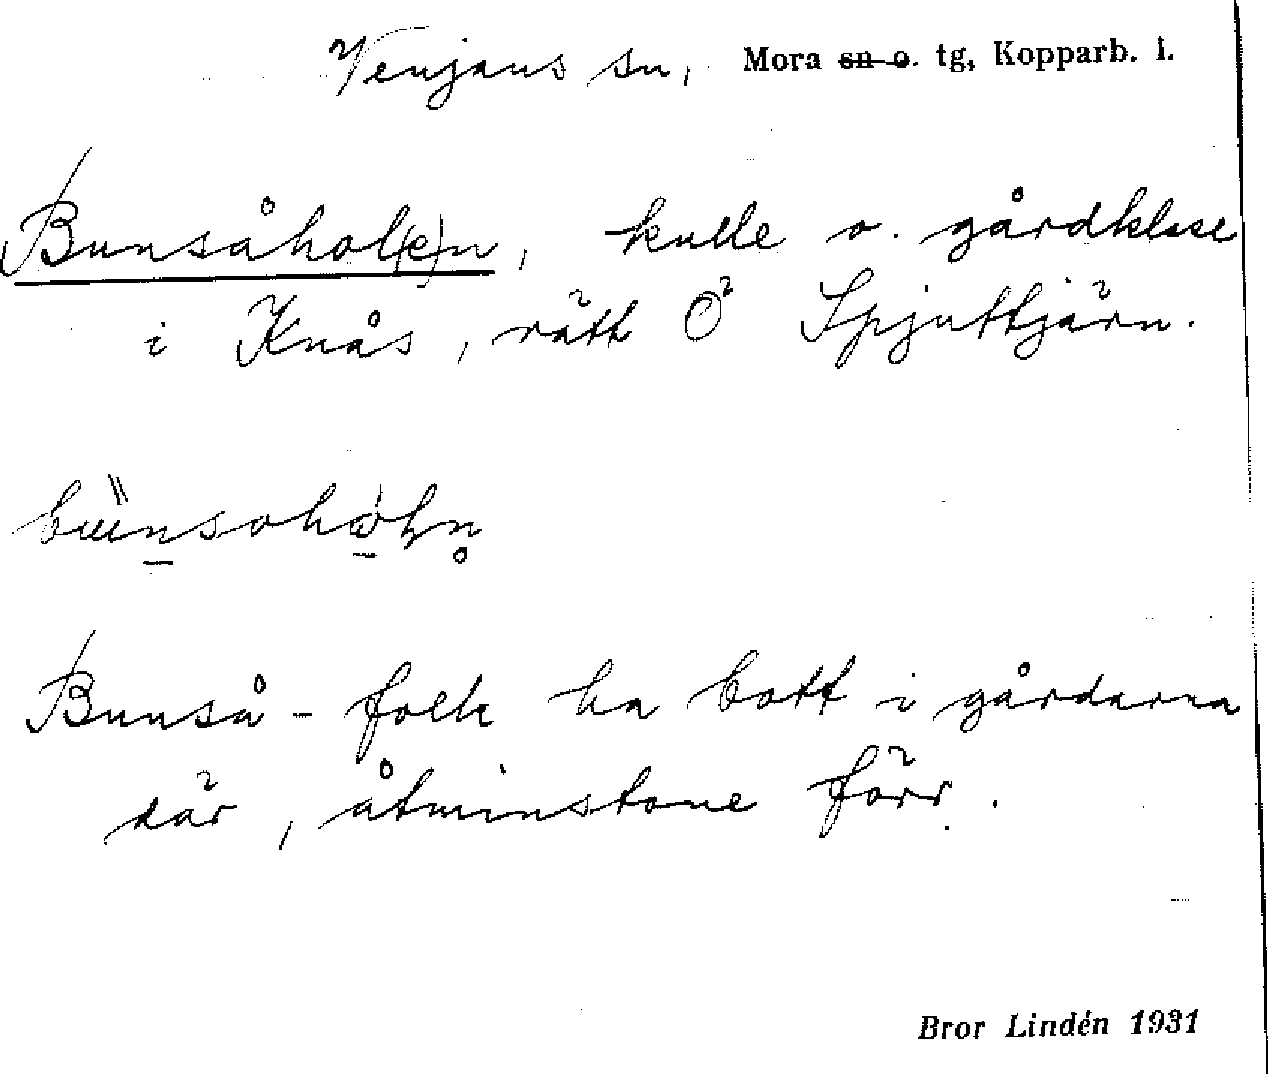 Venjans sn, Mora sn o. tg, Kopparb. l.
Bunsåhol(e)n, kulle o. gårdklase
i Knås, rätt Ö Spjuttjärn.
Bunså-folk ha bott i gårdarna
där, åtminstone förr.
Bror Lindén 1931